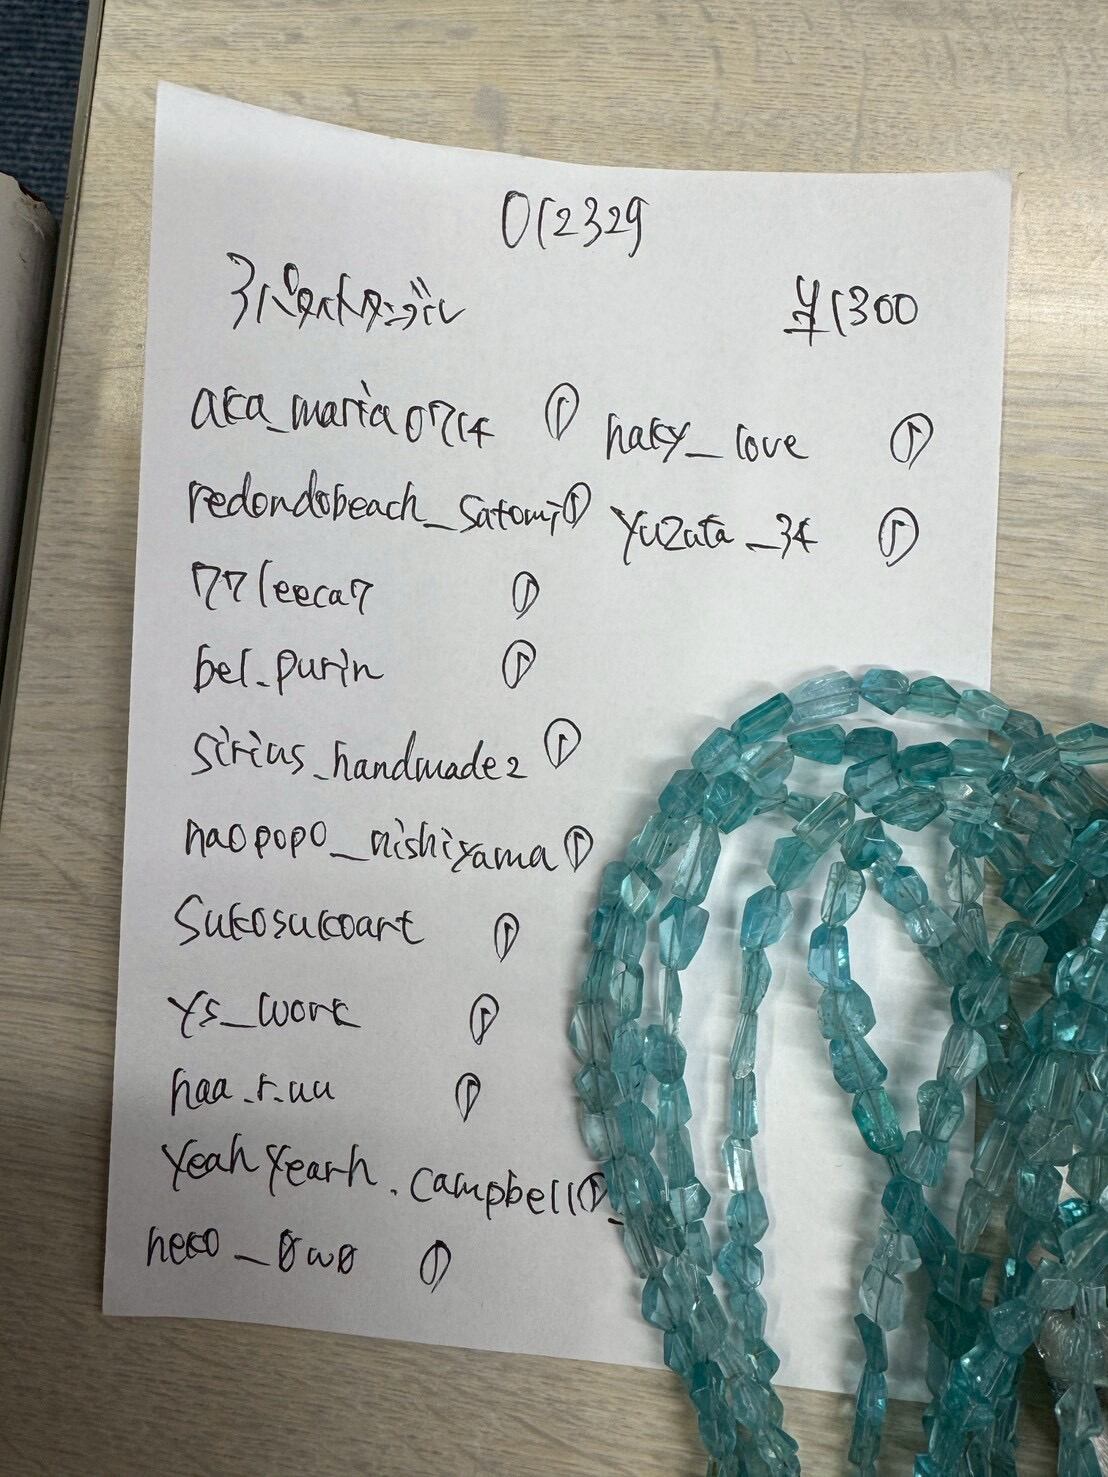 012329
アパタイトタンブル ¥1300
aka_maria0714 ①
redondobeach_satomi ①
771eeca7 ①
bel.purin ①
sirius_handmade2 ①
naopopo_nishiyama ①
sukosukoart ①
ys_work ①
haa.r.uu ①
yeahyearh.campbell ①
neko_0w0 ①
haky_love ①
yuzuta_34 ①